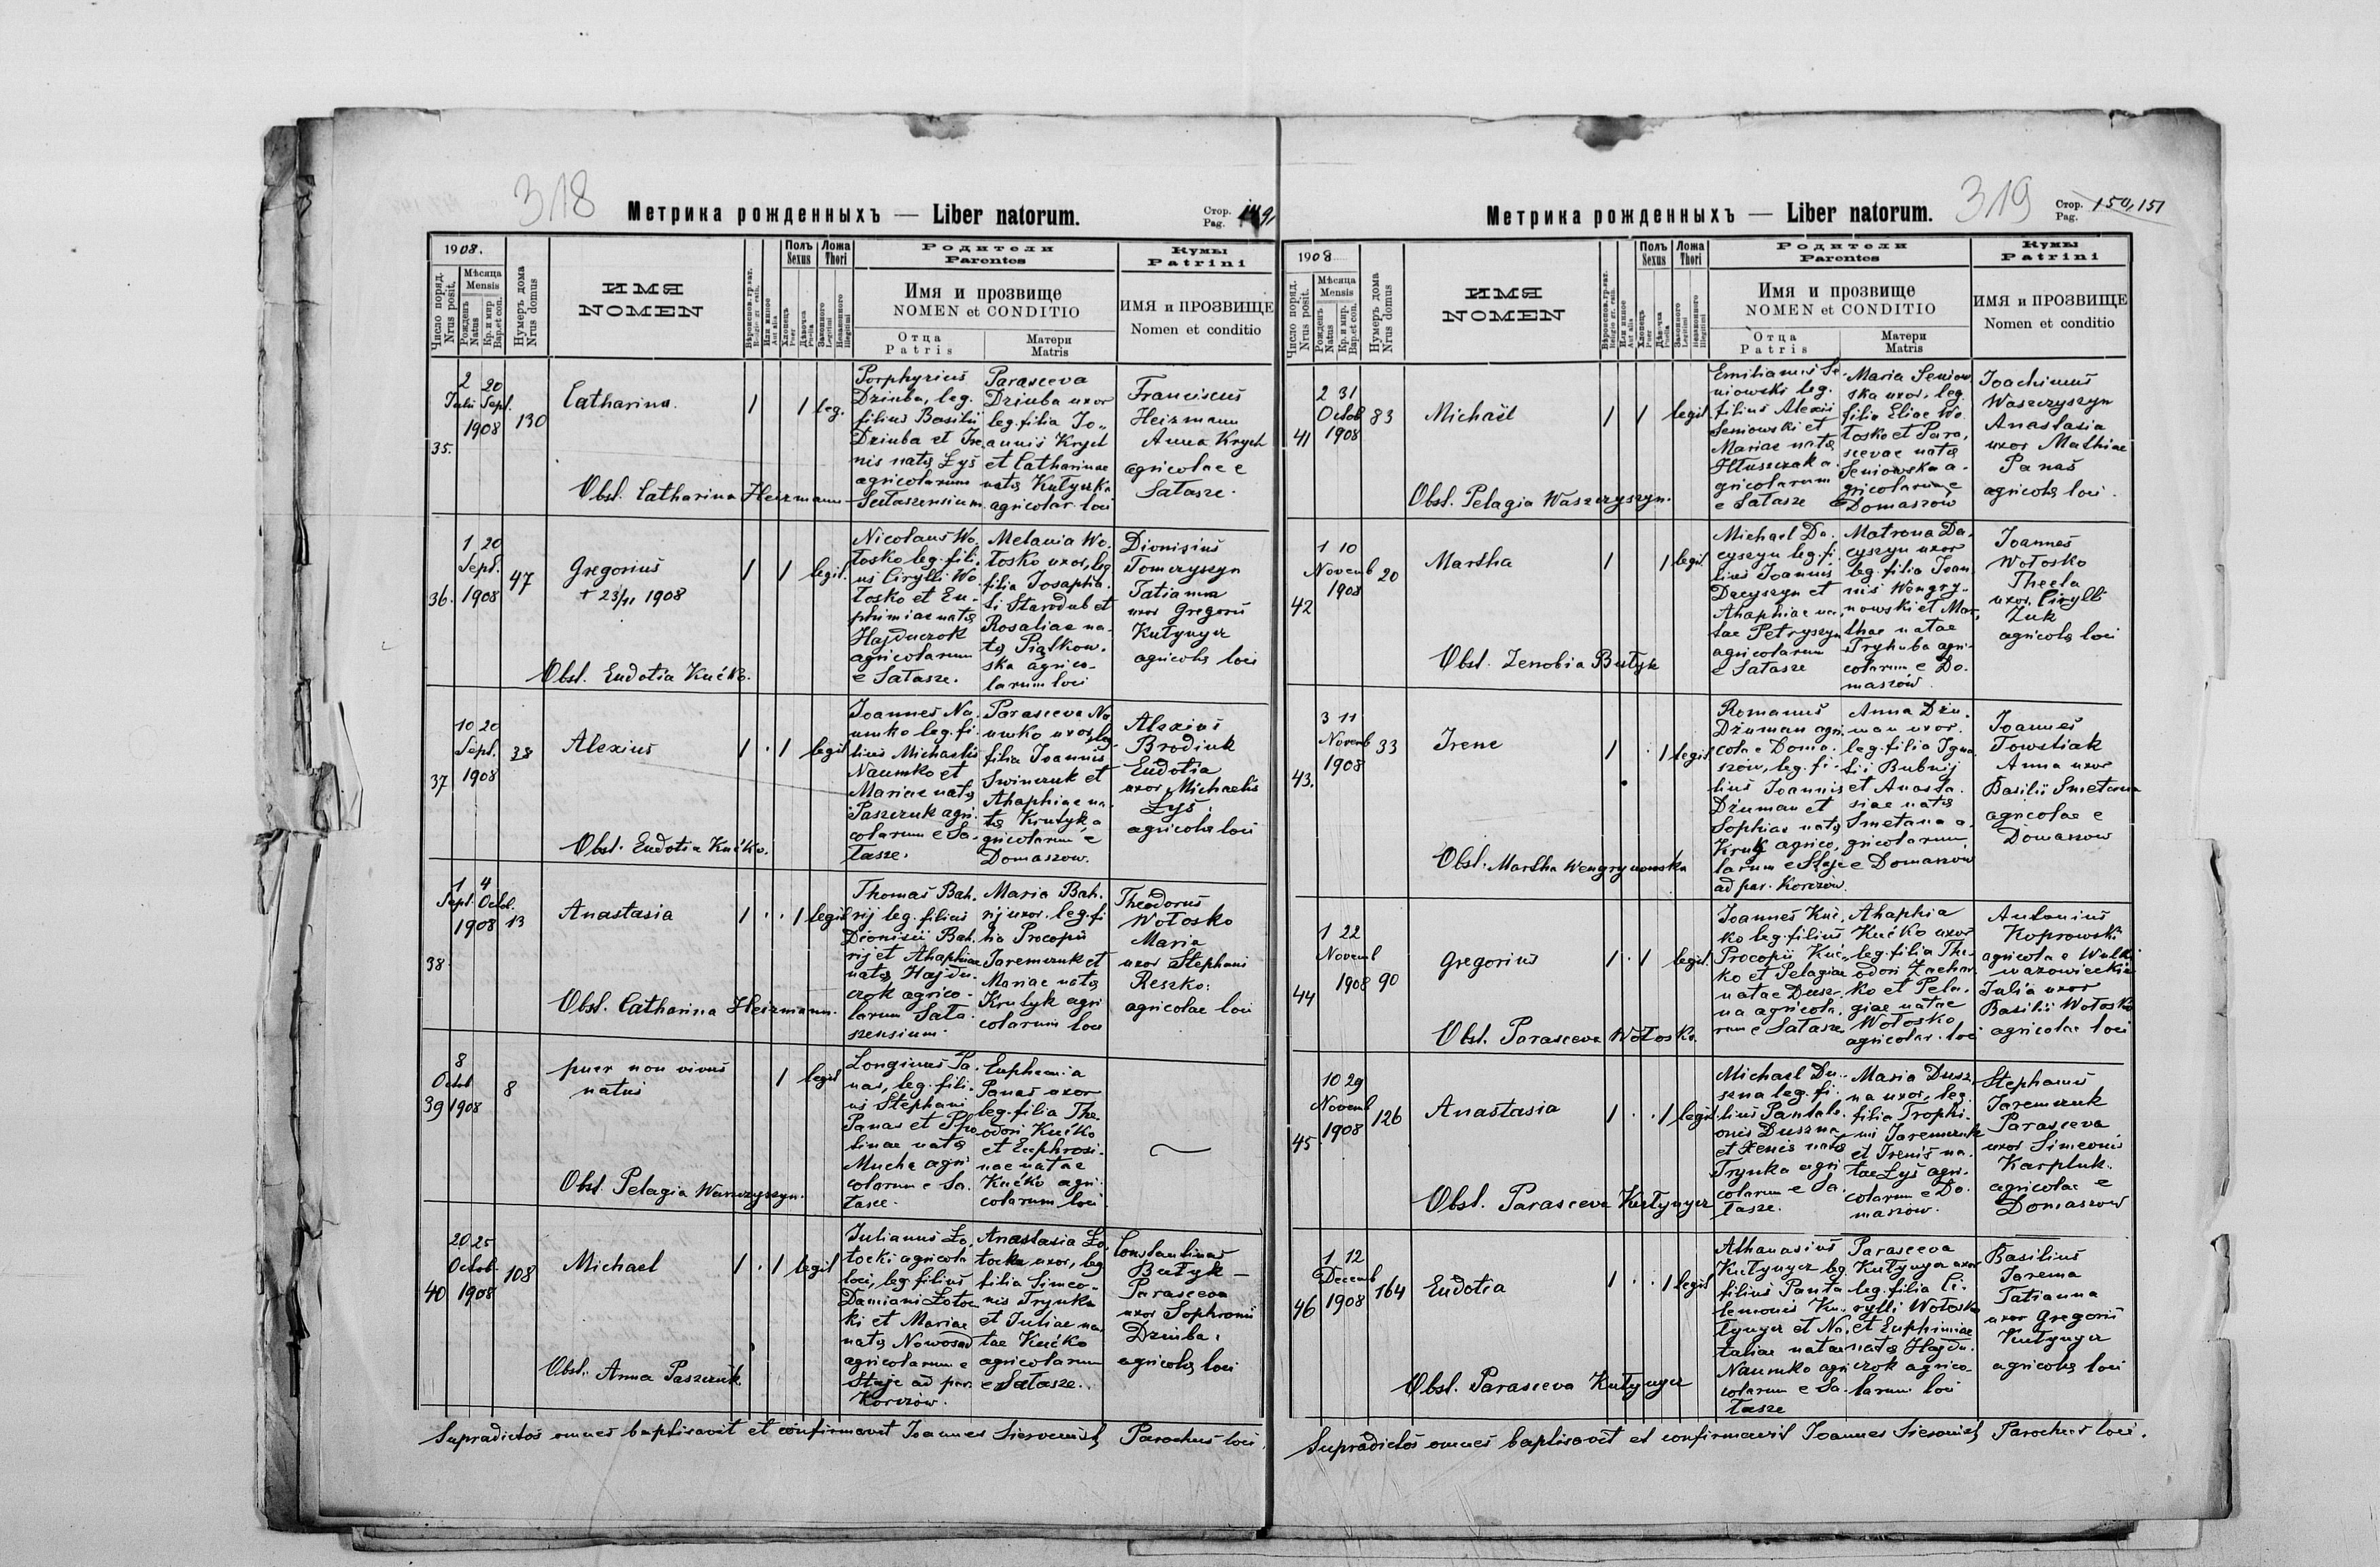 318
Метрика рожденныхъ — Liber natorum.
Стор.
Pag.
1908.
Число поряд.
Nrus posit.
Мѣсяца
Mensis
Рожденъ
Natus
Кр. и мир.
Bap. et con.
Нумеръ дома
Nrus domus
ИМЯ
NOMEN
Полъ
Sexus
Ложа
Thori
Родители
Parentes
Имя и прозвище
NOMEN et CONDITIO
Отца
Patris
Матери
Matris
Кумы
Patrini
ИМЯ и ПРОЗВИЩЕ
Nomen et conditio
35.
2 20
Julii Sept.
1908
130
Catharina.
1 1 leg.
Obst. Catharina Heizmann
Porphyrius
Dziuba, leg.
filius Basilii
Dziuba et Ire
nis natą Łyś
agricolarum
Sałaszensium
Parasceva
Dziuba uxor
leg. filia Jo„
annis Krych
et Catharinae
agricolar. loci
Franciscus
Heizmann
Anna Krych
agricolae e
Sałasze.
36.
1 20
Sept.
1908
47
Gregorius
† 23/11 1908
1 1 legit.
Obst. Eudotia Kućko.
Nicolaus Wo.
łosko leg. fili.
us Cirylli Wo
łosko et Eu-
phimiae natą
Hajduczok
agricolarum
e Sałasze.
Melania Wo.
łosko uxor, leg
filia Josapha.
ti Starodub et
Rosaliae na.
tą Piątkow.
ska agrico-
larum loci
Dionisius
Tomczyszyn
Tatianna
uxor Gregorii
Kułynycz
agricolą loci
37
10 20
Sept.
1908
38
Alexius
1 . 1 legit
Obst. Eudotia Kućko.
Joannes Na.
umko leg. fi.
lius Michaelis
Naumko et
Mariae natą
Paszczuk agri.
colarum e Sa.
łasze.
Parasceva Na
umko uxor leg.
filia Joannis
Swinczuk et
Ahaphiae na.
tą Krutyk a
gricolarum e
Domaszow.
Alexius
Brodiuk
Eudotia
uxor Michaelis
Łyś.
agricolą loci
38.
1 4
Sept. Octob.
1908
13
Anastasia
1 . . 1 legit
Obst. Catharina Heizmann.
Thomas Bah.
rij leg. filius
Dionisii Bah.
rij et Ahaphiae
natą Hajdu.
czok agrico-
larum Sała.
szensium.
Maria Bah.
rij uxor. leg. fi
lia Procopii
Jaremczuk et
Mariae natą
Krutyk agri
colarum loci
Theodorus
Wołosko
Maria
uxor Stephani
Reszko:
agricolae loci
39
8
Octob
1908
8
puer non vivus
natus
1 legit
Obst. Pelagia Waszczyszyn.
Longinus Pa.
nas, leg. fili.
us Stephani
Panas et
linae natą
Mucha agri
colarum e Sa.
łasze.
Euphemia
Panas uxor
leg. filia The
odori Kućko
et Euphrosi.
nae natae
Kućko agri.
colarum loci
40
20 25
Octob.
1908
108
Michael
1 . 1 legit
Obst. Anna Paszczuk.
Julianus Ło.
tocki agricola
loci, leg filius
Damiani Łotoc
ki et Mariae
natą Nowosad
agricolarum e
Staje ad par.
Korczów.
Anastasia Ło
tocka uxor, leg
filia Simeo-
nis Trynka
et Juliae na.
tae Kućko
agricolarum
e Sałasze.
Constantinus
Bułyk —
Parasceva
uxor Sophronii
Dziuba.
agricolą loci
Supradictos omnes baptisavit et confirmavit Joannes Parochus loci.
319
Метрика рожденныхъ — Liber natorum.
Стор.
Pag.
150, 151
1908
Число поряд.
Nrus posit.
Мѣсяца
Mensis
Рожденъ
Natus
Кр. и мир.
Bap. et con.
Нумеръ дома
Nrus domus
ИМЯ
NOMEN
Полъ
Sexus
Ложа
Thori
Родители
Parentes
Имя и прозвище
NOMEN et CONDITIO
Отца
Patris
Матери
Matris
Кумы
Patrini
ИМЯ и ПРОЗВИЩЕ
Nomen et conditio
41
2 31
Octob
1908
83
Michaël
1 1 legit
Obst. Pelagia Waszczyszyn.
Emilianus Se.
niowski leg.
filius Alexii
Seniowski et
Mariae natą
Hłuszczak a.
gricolarum
e Sałasze
Maria Seniow
ska uxor, leg.
filia Eliae Wo.
łosko et Para,
scevae natą
Seniowska a.
gricolarum e
Domaszów
Joachimus
Waszczyszyn
Anastasia
uxor Mathiae
Panas
agricolą loci.
42
1 10
Novemb
1908
20
Martha
1 1 legit
Obst. Zenobia Bułyk
Michael Da.
cyszyn leg. fi.
lius Joannis
Dacyszyn et
Ahaphiae na.
tae Petryszyn
agricolarum
e Sałasze
Matrona Da.
cyszyn uxor
leg. filia Joan.
nis Wengry.
nowski et Mar.
thae natae
Tryhuba agri-
colarum e Do.
maszów.
Joannes
Wołosko
Thecla
uxor Cirylli
Zuk
agricolą loci
43.
3 11
Novemb
1908
33
Irene
1 . 1 legit
Obst. Martha Wengrynowska
Romanus
Dżuman agri.
cola e Doma.
szów, leg. fi.
lius Joannis
Dżuman et
Sophiae natą
Kruk agrico.
larum e Staje
ad par. Korczow.
Anna Dżu.
man uxor.
leg. filia Igna
tii Bubnij
et Anasta.
siae natą
Smetana a.
gricolarum
e Domaszow
Joannes
Towstiak
Anna uxor
Basilii Smetana
agricolae e
Domaszow
44
1 22
Novemb
1908
90
Gregorius
1 . 1 legit.
Obst. Parasceva Wołosko.
Joannes Kuć.
ko leg. filius
Procopii Kuć.
ko et Pelagiae
natae Dusz.
na agricola.
rum e Sałasze
Ahaphia
Kućko uxor
leg. filia The.
odori Zachar.
ko et Pela.
giae natae
Wołosko
agricolar. loci
Antonius
Koprowski
agricola e Wulki
mazowieckie
Julia uxor
Basilii Wołosko
agricolae loci
45
10 29
Novemb
1908
126
Anastasia
1 . . 1 legit
Obst. Parasceva Kułynycz
Michael Du.
szna leg. fi.
lius Pantale.
onis Duszna
et Xenis natą
Trynka agri
colarum e Sa.
łasze.
Maria Dusz.
na uxor, leg.
filia Trophi.
mi Jaremczuk
et Irenis na.
tae Łyś agri.
colarum e Do.
maszow.
Stephanus
Jaremczuk
Parasceva
uxor Simeonis
Karpluk.
agricolae e
Domaszow
46
1 12
Decemb
1908
164
Eudotia
1 . . 1 legit
Obst. Parasceva Kułynycz
Athanasius
Kułynycz leg.
filius Panta
lemonis Ku.
łynycz et Na.
taliae natae
Naumko agri
colarum e Sa.
łasze
Parasceva
Kułynycz uxor
leg. filia Ci.
rylli Wołosko
et Euphimiae
natą Hajdu.
czok agrico-
larum loci
Basilius
Jarema
Tatianna
uxor Gregorii
Kułynycz
agricolą loci
Supradictos omnes baptisavit et confirmavit Joannes Parochus loci.